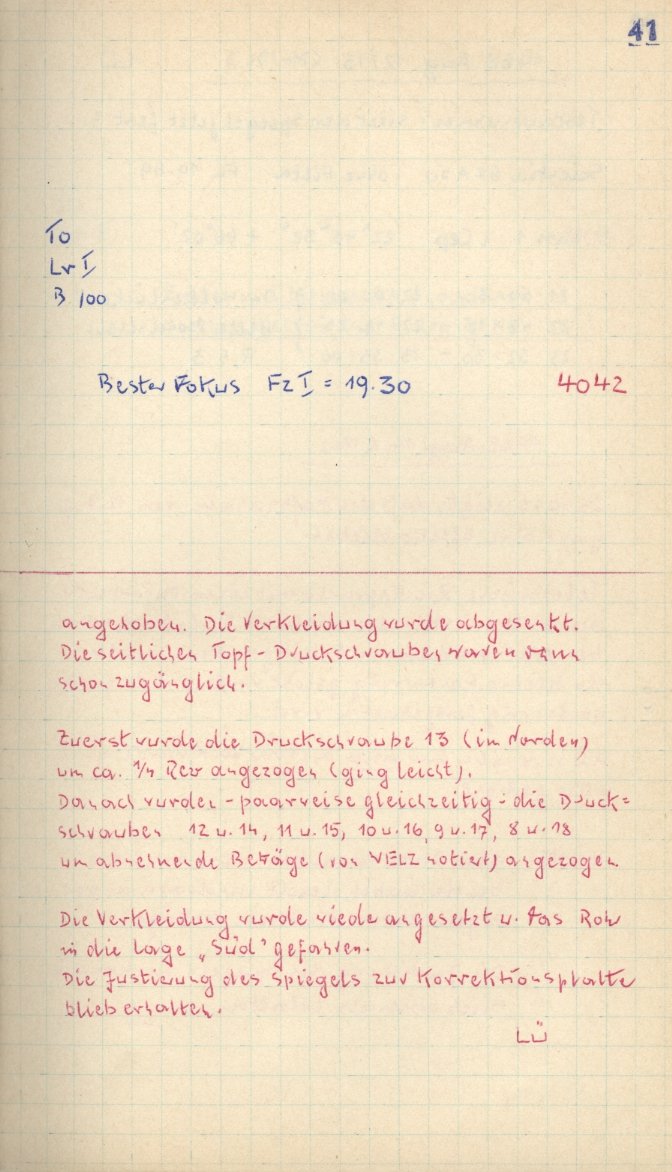 41
To
Lv I
B 100
Bester Fokus Fz I = 19.30 4042
angehoben. Die Verkleidung wurde abgesenkt.
Die seitlichen Topf-Druckschrauben waren dann
schon zugänglich.
Zuerst wurde die Druckschraube 13 (im Norden)
um ca. Rev angezogen (ging leicht).
Danach wurden - paarweise gleichzeitig - die Druck=
schrauben 12 u. 14, 11 u. 15, 10 u. 16, 9 u. 17, 8 u. 18
um abnehmende Beträge (von VELZ notiert) angezogen
Die Verkleidung wurde wiede angesetzt u. das Rohr
in die Lage „Süd" gefahren.
Die Justierung des Spiegels zur Korrektionsplatte
blieb erhalten.
LÜ